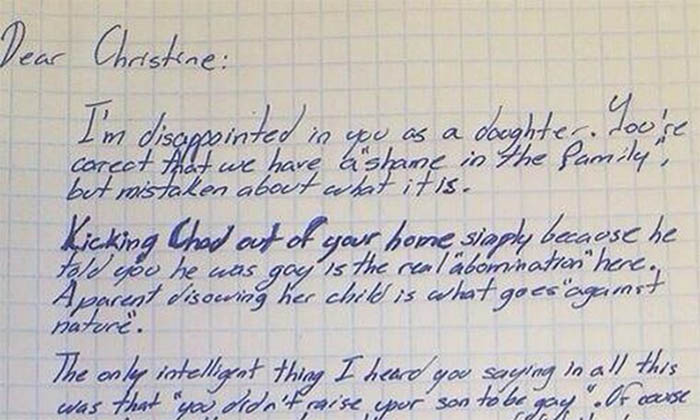 Dear Christine:
I'm disappointed in you as a daughter. You're
corect that we have a "shame in the family",
but mistaken about what it is.
Kicking Chad out of your home simply because he
told you he was gay is the real "abomination" here.
A parent disowing her child is what goes "against
nature".
The only intelligent thing I heard you saying in all this
was that "you didn't raise your son to be gay". Of course